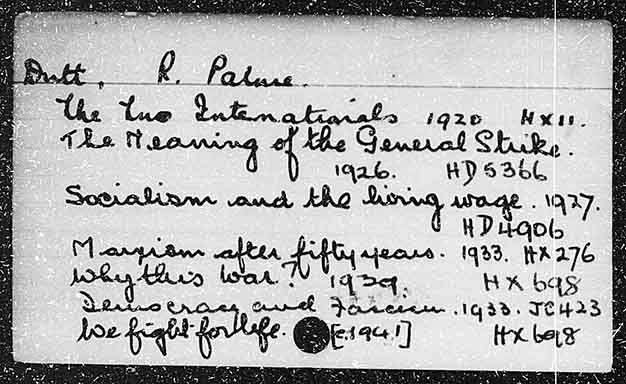 Dutt, R. Palme.
The Two Internationals 1920 HX11.
The Meaning of the General Strike.
1926. HD5366
Socialism and the living wage. 1927.
HD4906
Marxism after fifty years. 1933. HX276
Why this War? 1939. HX698
Democracy and Fascism. 1933. JC423
We fight for life. [c.1941] HX698